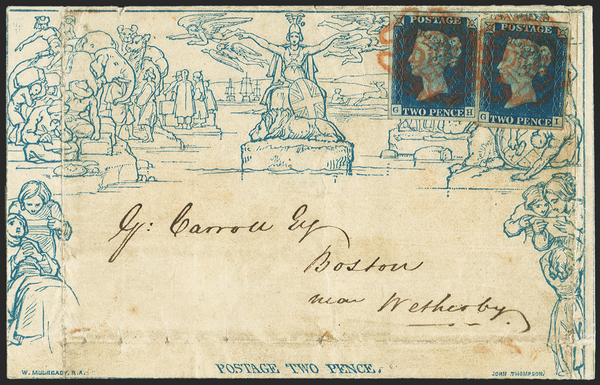 POSTAGE POSTAGE
G H G I
TWO PENCE TWO PENCE
G: Carroll Esq
Boston
near Wetherby.
POSTAGE TWO PENCE.
W. MULREADY, R.A. JOHN THOMPSON